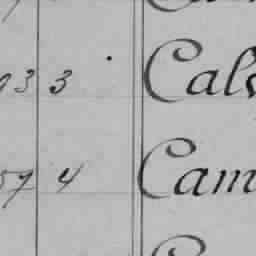 93 3 Cal
57 4 Cam